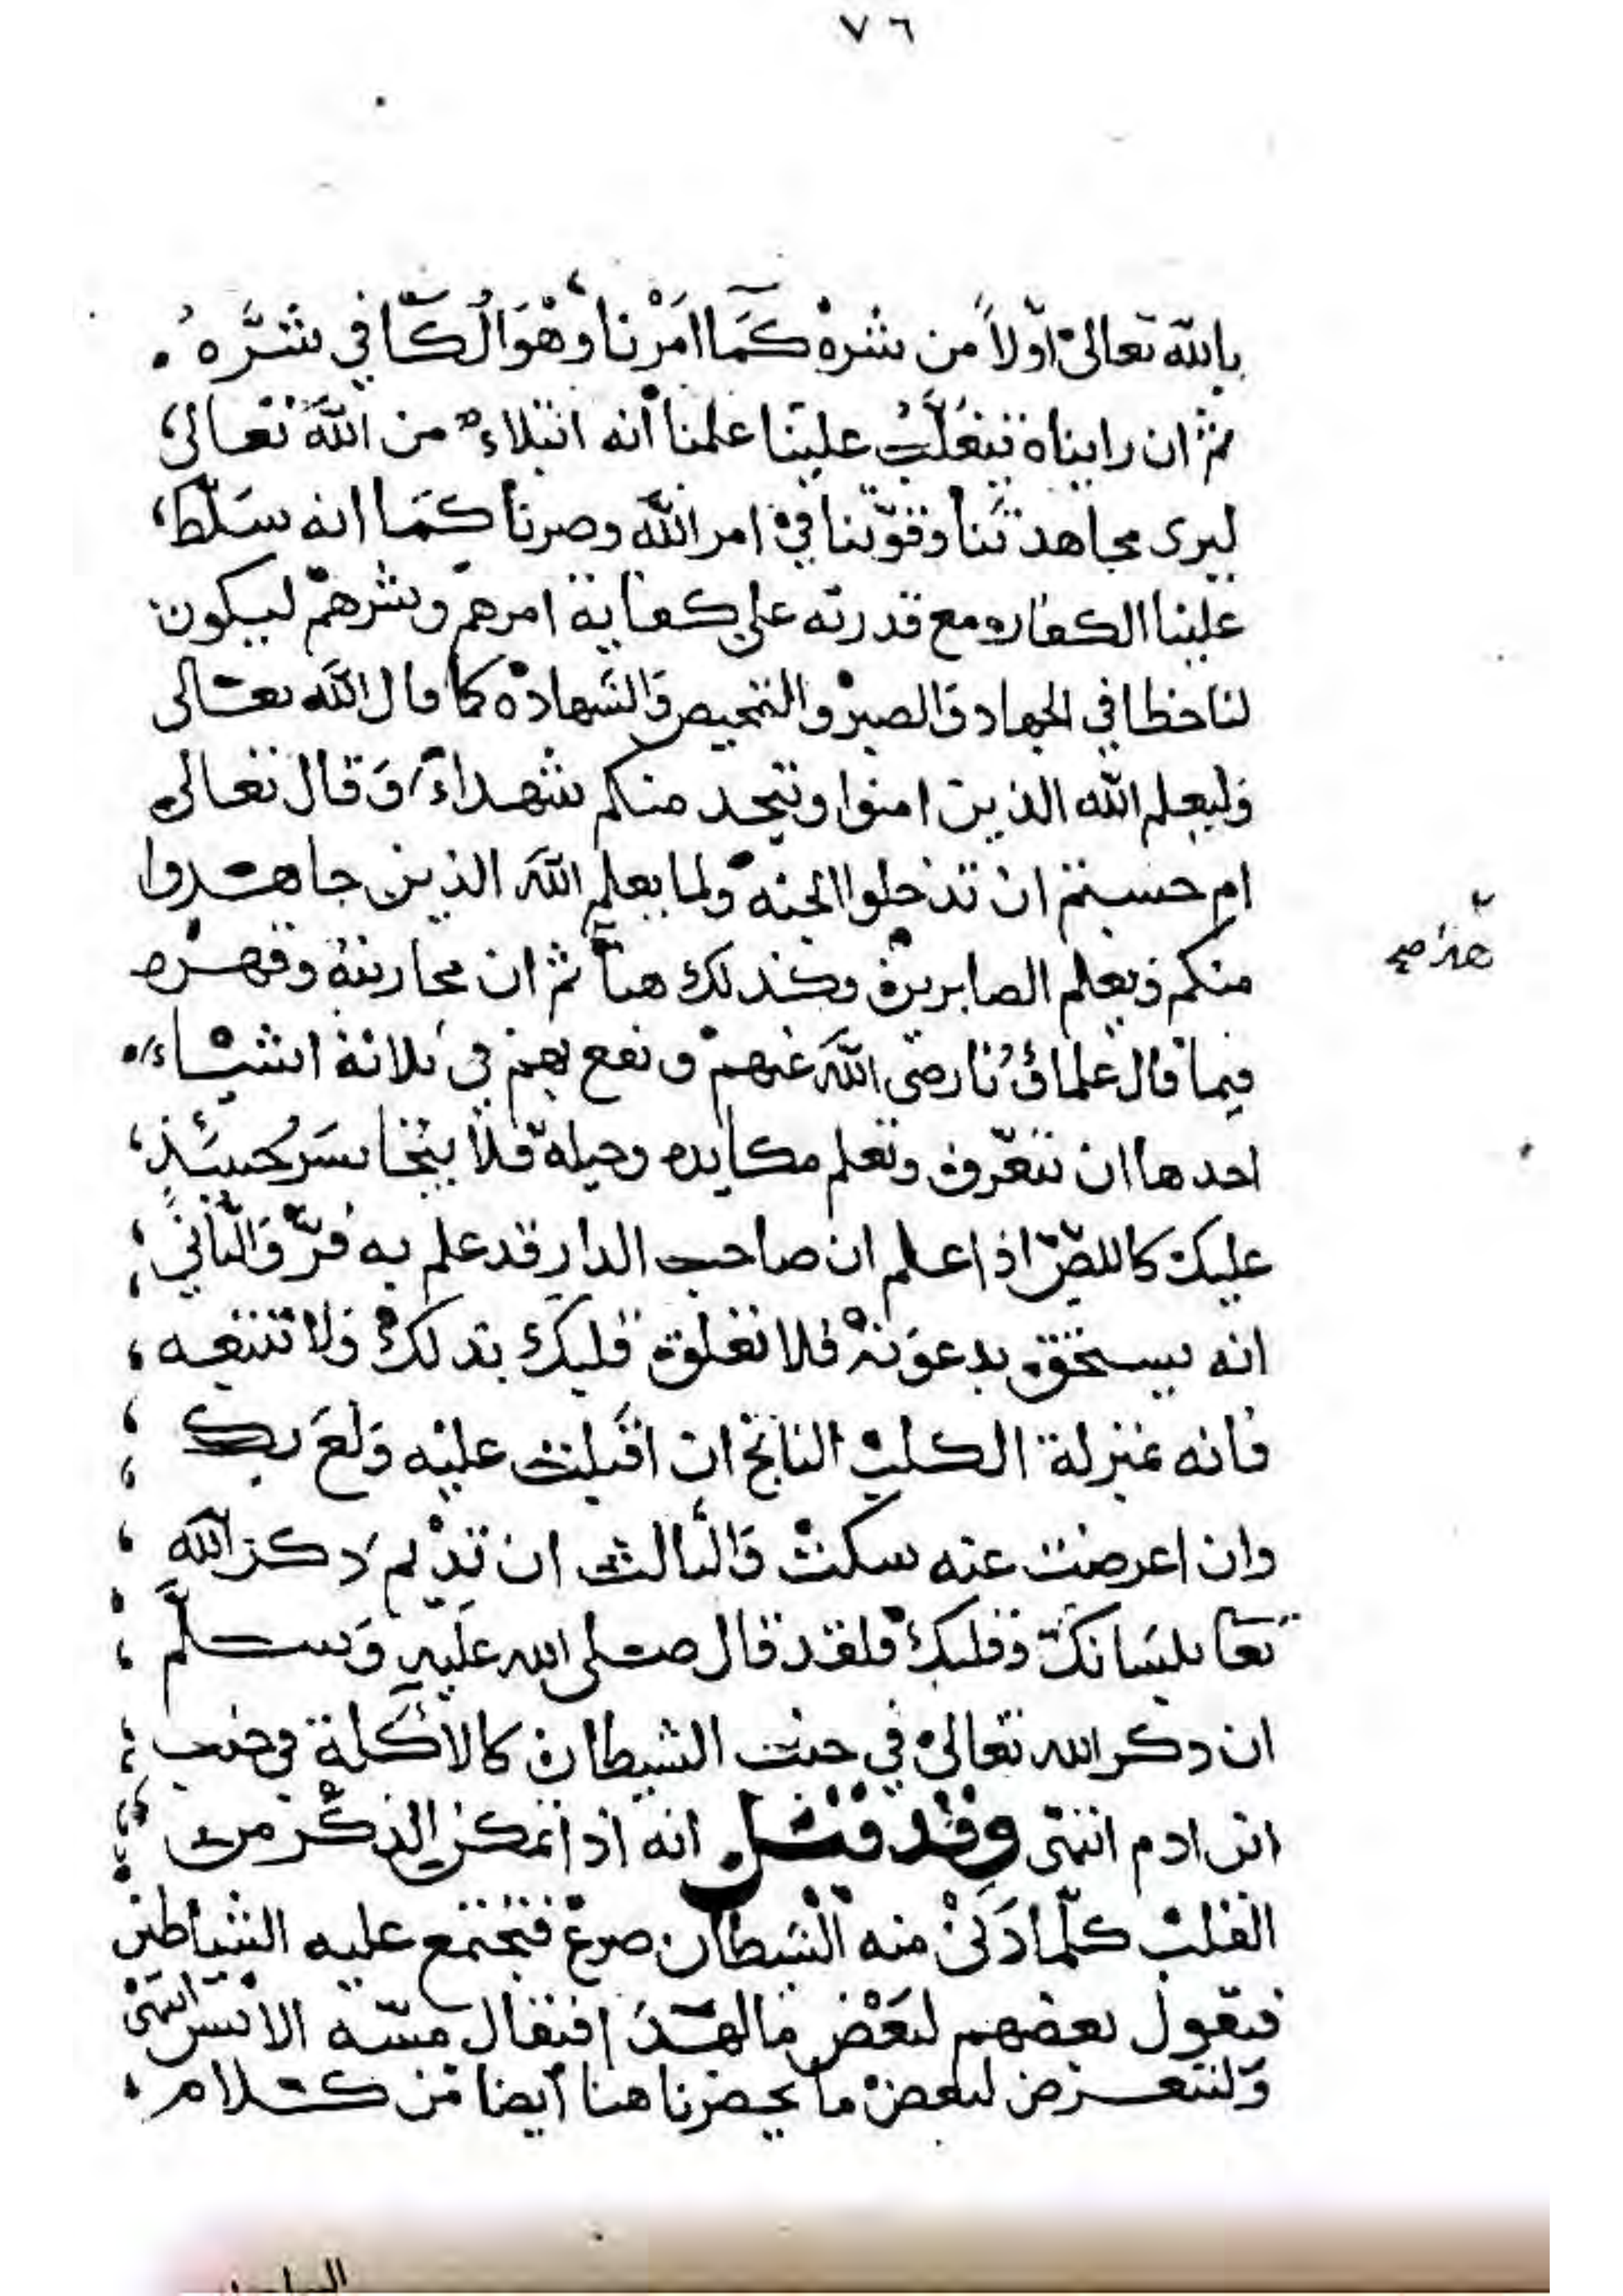 ٧٦
بالله تعالى اولاً من شره كَمَا اَمَرْنا وَهْوَ الْكَافي شَرَّهُ
ثم ان رايناه يتغلّب علينا علمنا أنه ابتلاء من الله تعالى
ليرى مجاهدتنا وقوّتنا في امر الله وصبرنا كما انه سلّط
علينا الكفار ومع قدرته على كفاية امرهم وشرهم ليكون
لنا حظا في الجهاد والصبر والتمحيص والشهاده كما قال الله تعالى
وليعلم الله الذين امنوا ويتخد منكم شهداء وقال تعالى
ام حسبتم ان تدخلوا الجنه ولما يعلم الله الذين جاهدوا
منكم ويعلم الصابرين وكذلك هنا ثم ان محاربته وقهره
فيما قال علماؤنا رضى الله عنهم ونفع بهم في ثلاثة اشياء
احدها ان تتعرف وتعلم مكايده وحيله فلا يتجاسر حينئذ
عليك كاللصّ اذا علم ان صاحب الدار قد علم به فرّ والثاني
انه يستخف بدعوته فلا تعلق قلبك بذلك ولا تتبعه
فانه بمنزلة الكلب النابح ان اقبلت عليه ولع بك
وان اعرضت عنه سكت والثالث ان تديم ذكر الله
تعا بلسانك وقلبك فلقد قال صلى الله عليه وسلم
ان ذكر الله تعالى في جنب الشيطان كالأكلة في جنب
ابن ادم انتهى وقد قيل انه اذا تمكن الذكر من
القلب كلّما دَنى منه الشيطان صرع فتجتمع عليه الشياطين
فيقول بعضهم لبعض ما لهذا فيقال مسّه الانس انتهى
ولنتعرض لبعض ما يحضرنا هنا أيضا من كلام